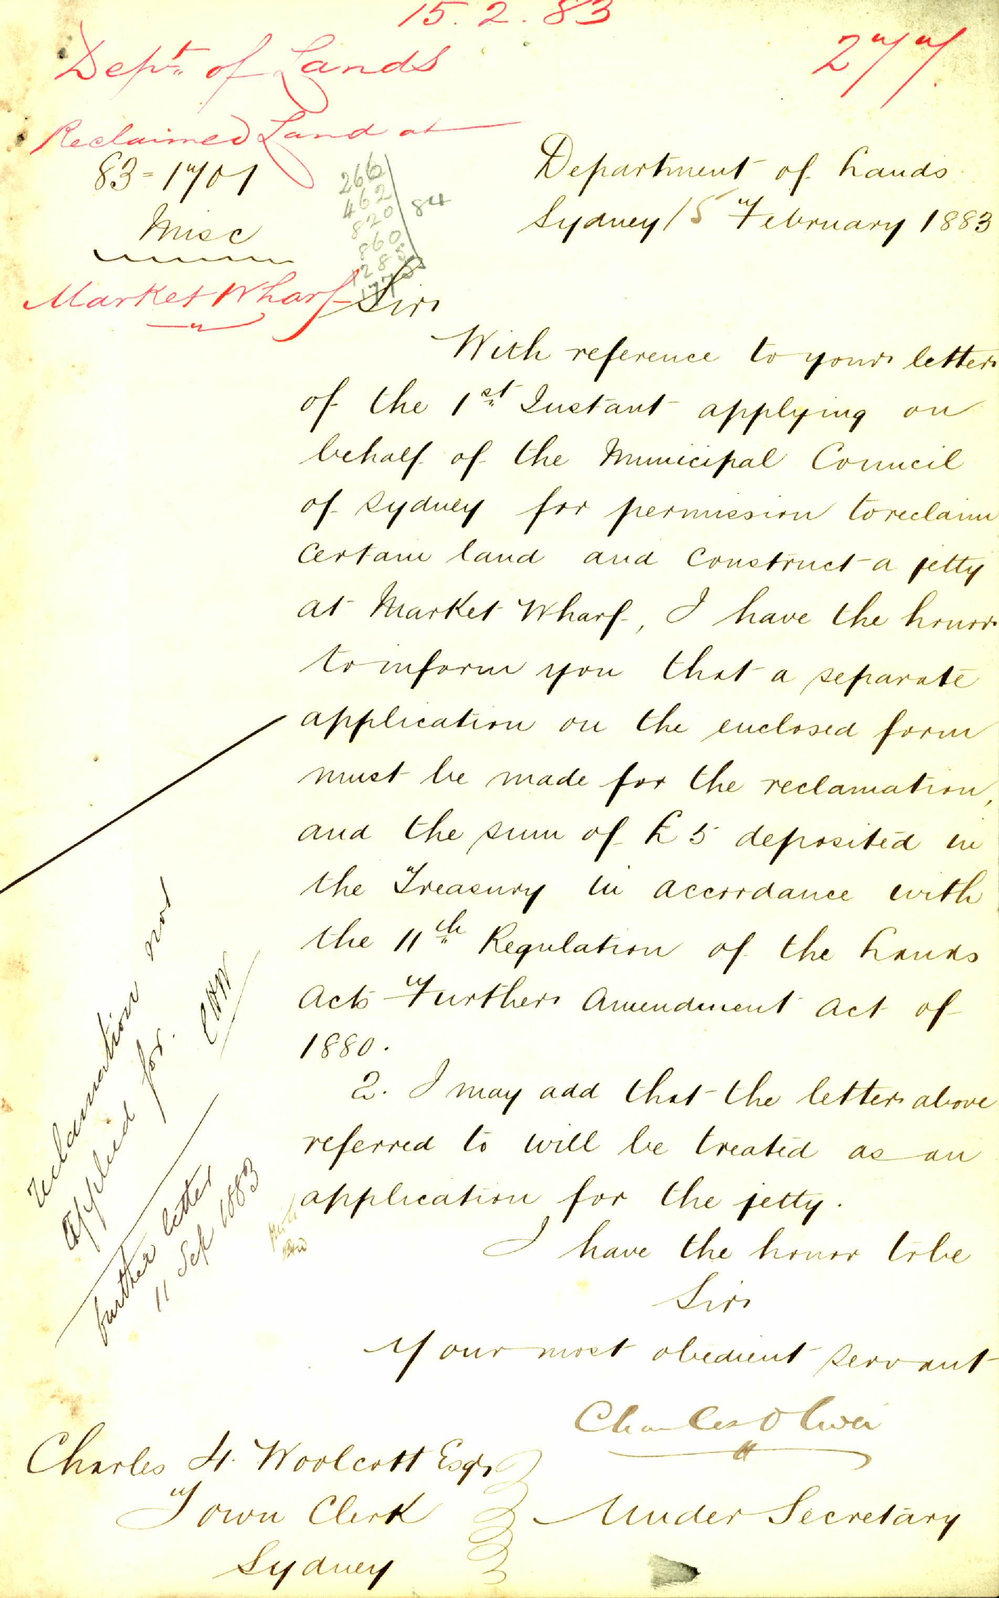 15. 2. 83
277.
Dept. of Lands
Reclaimed Land at
83-1701
Misc
Market Wharf
266
462
820
860
84
Department of Lands
Sydney 15 February 1883
Sir
With reference to your letter
of the 1st Instant applying on
behalf of the Municipal Council
of Sydney for permission to reclaim
certain land and construct a jetty
at Market Wharf, I have the honor
to inform you that a separate
application on the enclosed form
must be made for the reclamation,
and the sum of £5 deposited in
the Treasury in accordance with
the 11th Regulation of the Lands
Acts Further Amendment Act of
1880.
2. I may add that the letter above
referred to will be treated as an
application for the jetty.
I have the honor to be
Sir
Your most obedient servant
Charles Oliver
Under Secretary
Charles H. Woolcott Esqr
Town Clerk
Sydney
Reclamation not
applied for.
CHW
further letter
11 Sep 1883